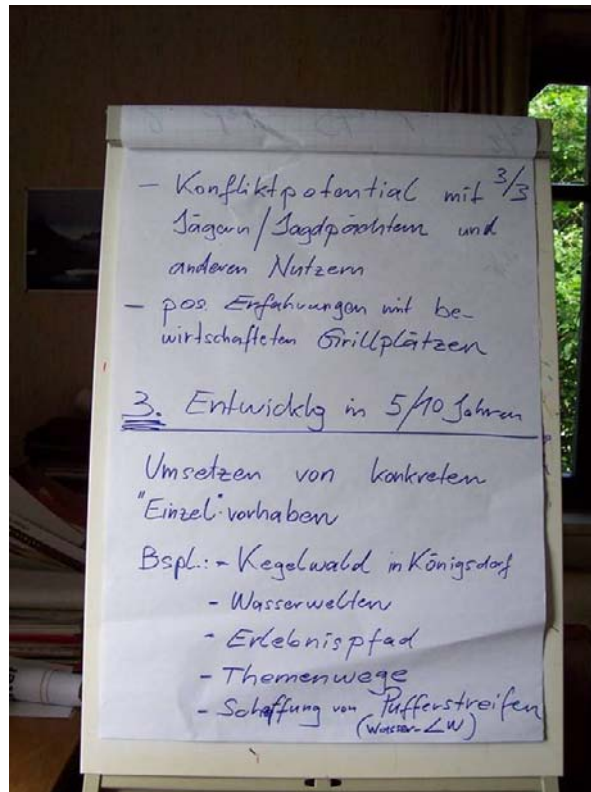 - Konfliktpotential mit 3/3
Jägern/Jagdpächtern und
anderen Nutzern
- pos. Erfahrungen mit be-
wirtschafteten Grillplätzen
3. Entwicklg in 5/10 Jahren
Umsetzen von konkreten
"Einzel"vorhaben
Bspl.: - Kegelwald in Königsdorf
- Wasserwelten
- Erlebnispfad
- Themenwege
- Schaffung von Pufferstreifen
(Wasser-LW)